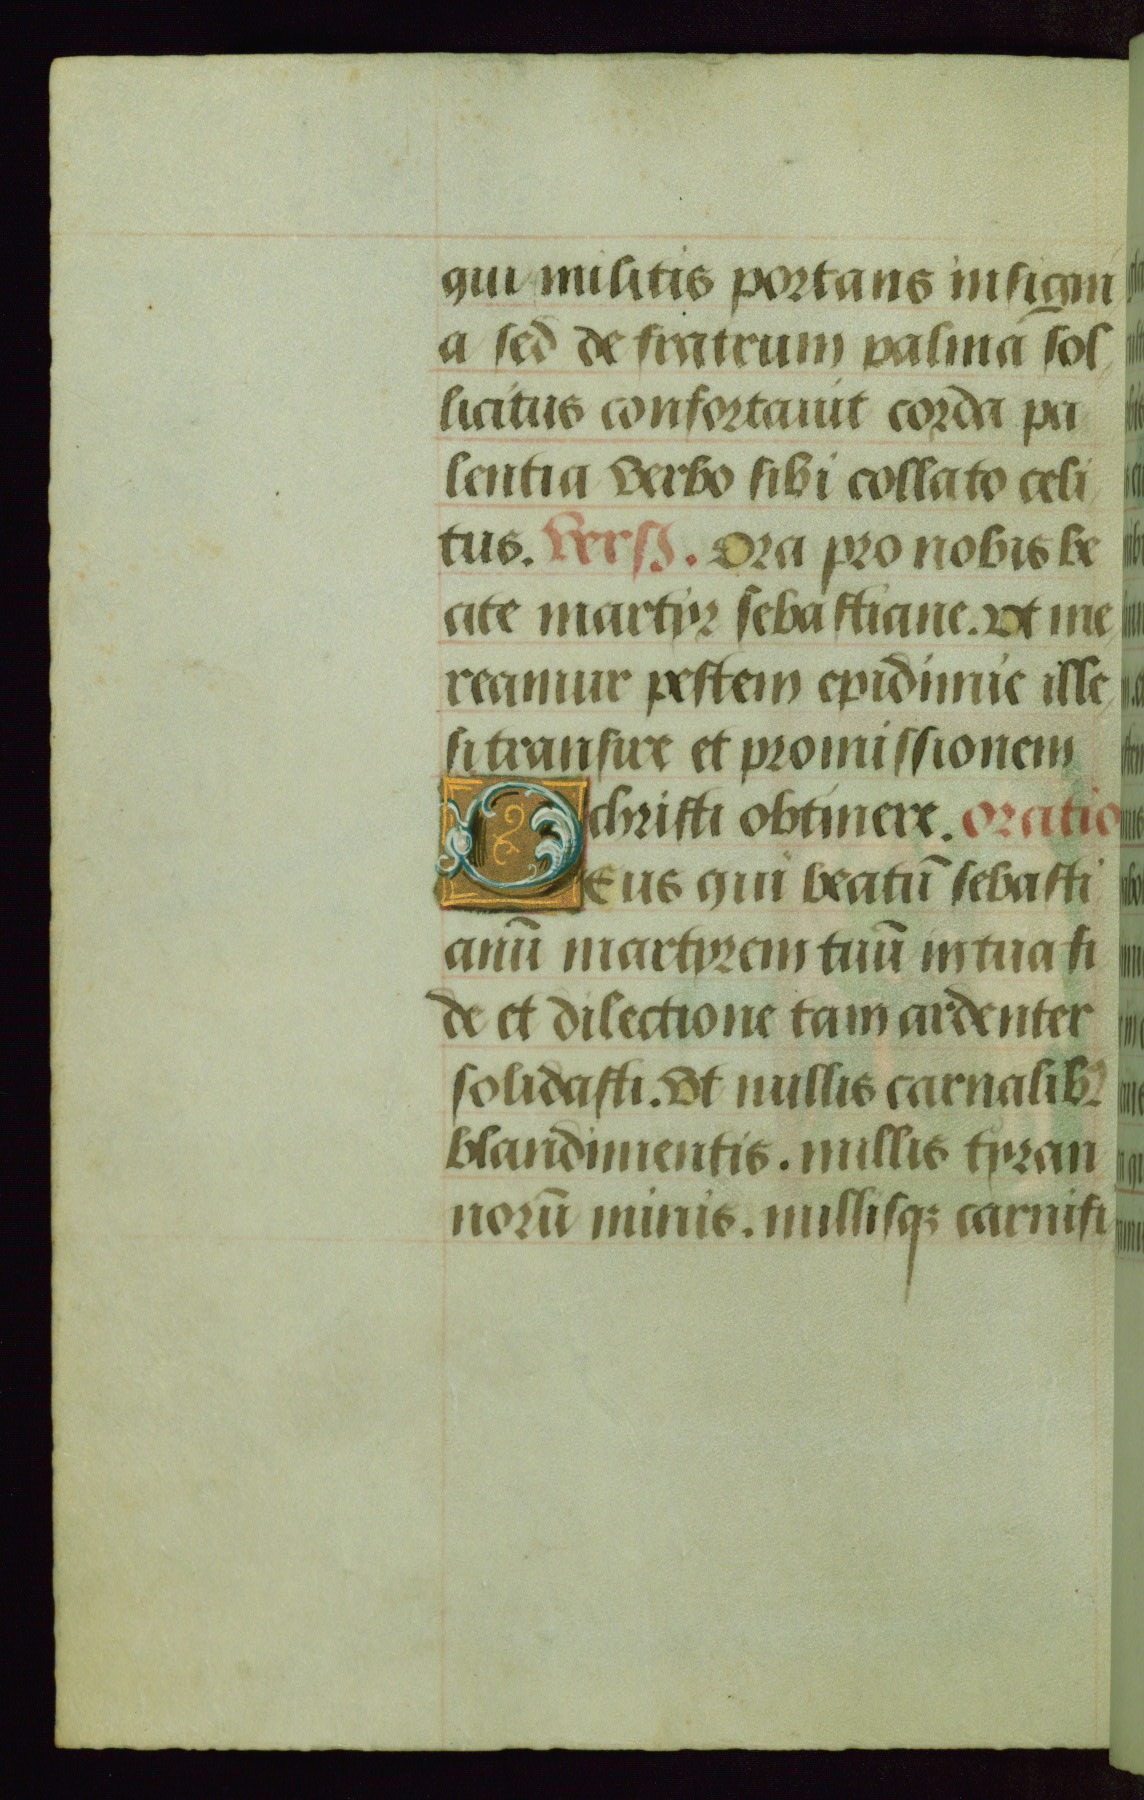 qui militis portans insigni
a sed de fratrum palmā sol
licitus confortauit corda pa
lentia verbo sibi collato celi
tus. Versꝫ. Ora pro nobis be
ate martyr sebastiane. Vt me
reamur pestem epidimie ille
si transire et promissionem
christi obtinere. Oratio
DEus qui beatū sebasti
anū martyrem tuū in tua fi
de et dilectione tam ardenter
solidasti. Vt nullis carnalibꝫ
blandimentis. nullis tyran
norū minis. nullisqꝫ carnifi